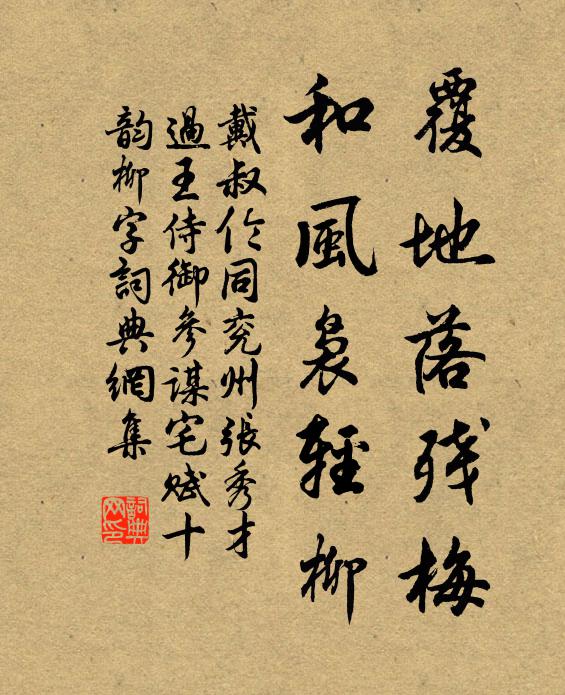 覆地落残梅
和風裊輕柳
戴叔伦同兖州張秀才
過王侍御參謀宅賦十
韵柳字詞典網集
詞典
网印